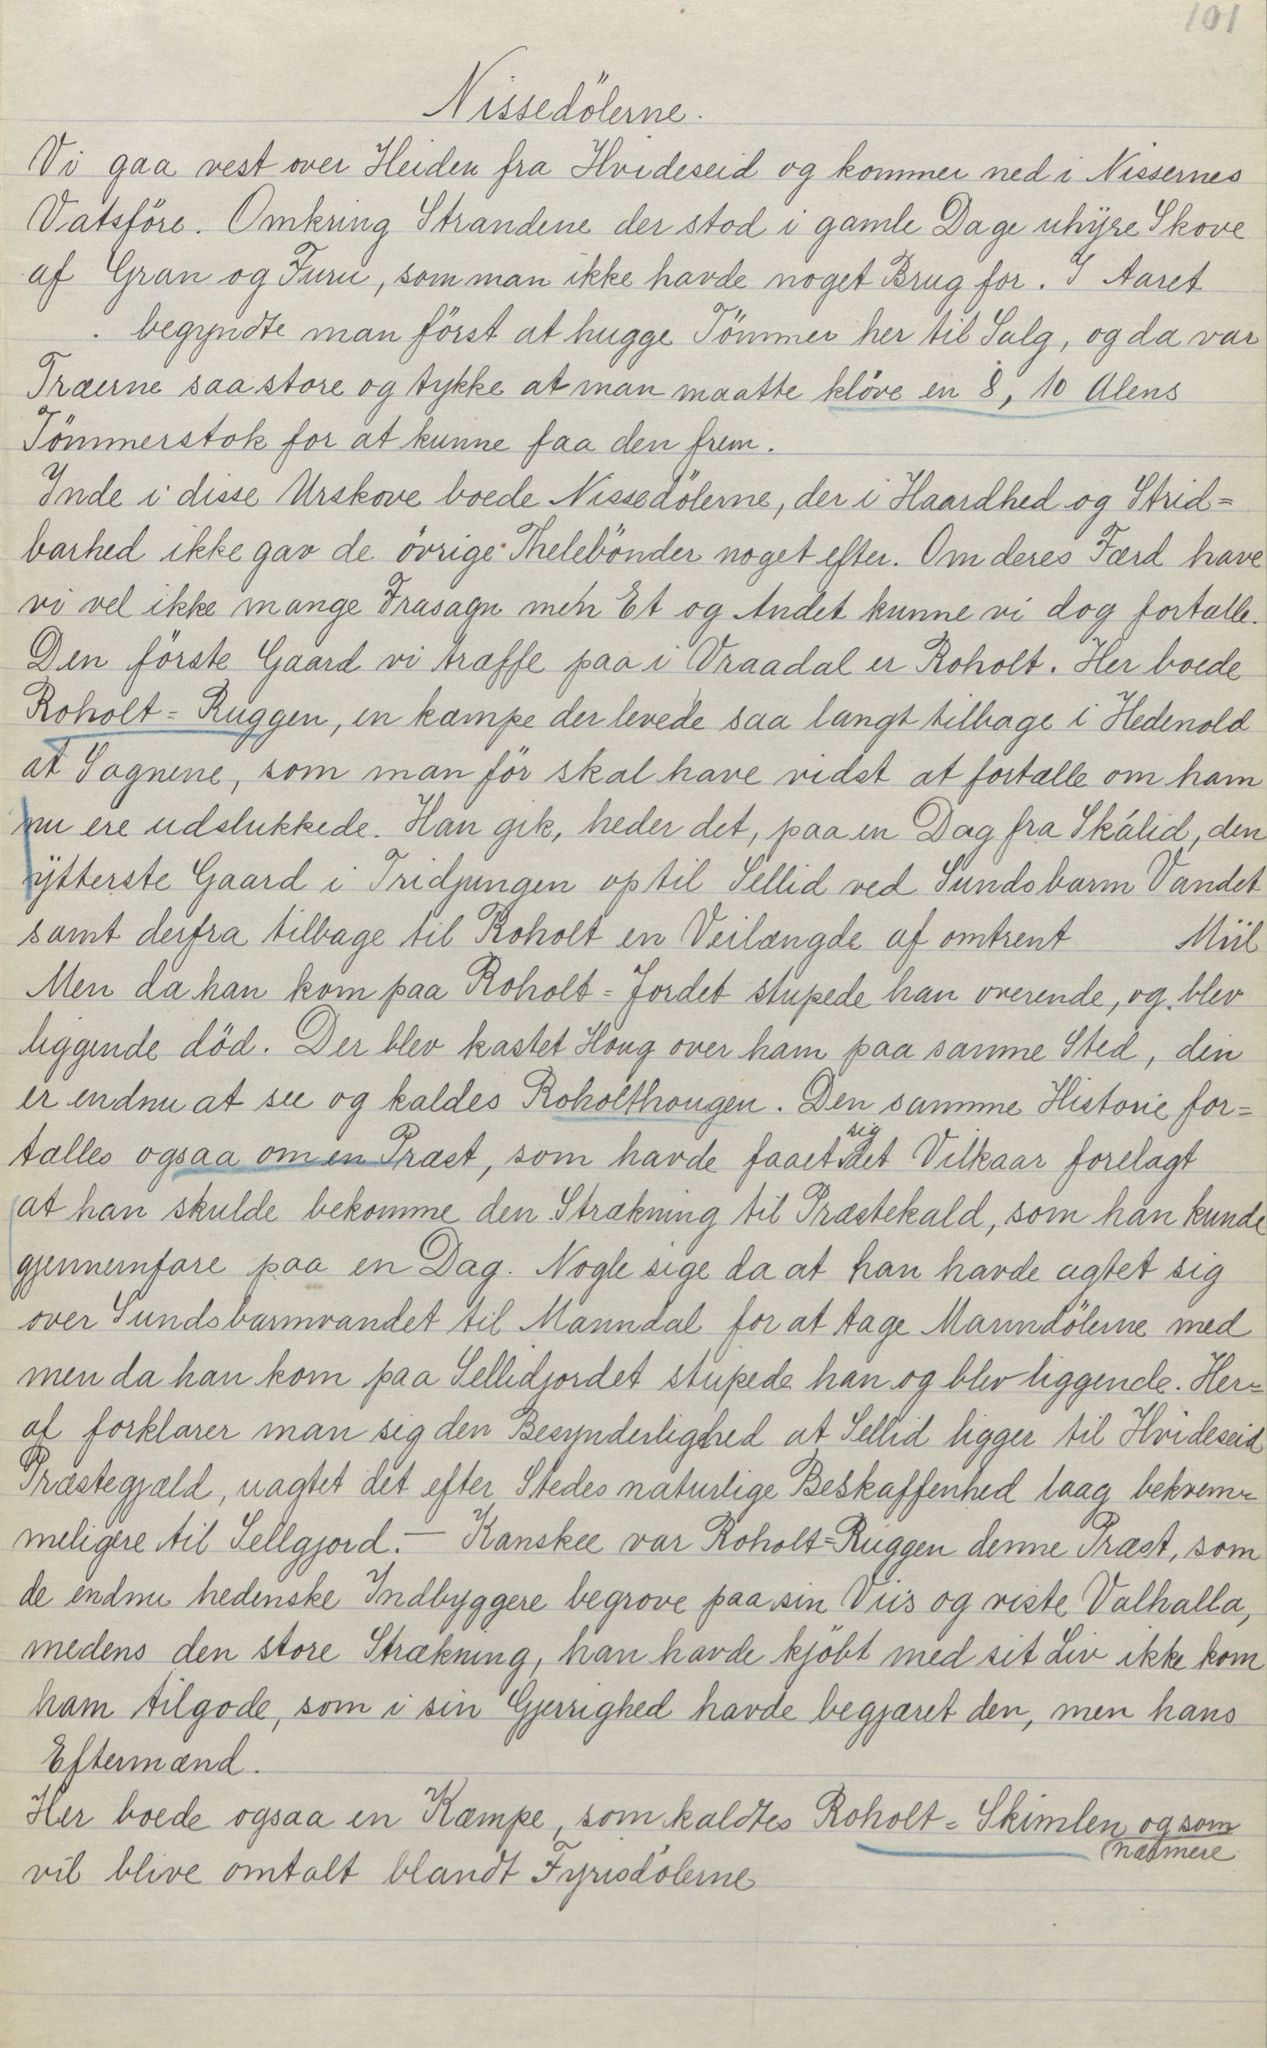 101
Nissedölerne.
Vi gaa vest over Heiden fra Hvideseid og kommer ned i Nissernes
Vatsföre. Omkring Strandene der stod i gamle Dage uhÿre Skove
af Gran og Furu, som man ikke havde noget Brug for. I Aaret
. begyndte man först at hugge Tömmer her til Salg, og da var
Træerne saa store og tykke at man maatte klöve en 8, 10 Alens
Tömmerstok for at kunne faa den frem.
Inde i disse Urskove boede Nissedölerne, der i Haardhed og Strid=
barhed ikke gav de övrige Thelebönder noget efter. Om deres Færd have
vi vel ikke mange Frasagn men Et og Andet kunne vi dog fortælle.
Den förste Gaard vi træffe paa i Vraadal er Roholt. Her boede
Roholt=Ruggen, en kæmpe der levede saa langt tilbage i Hedenold
at Sagnene, som man för skal have vidst at fortælle om ham
nu ere udslukkede. Han gik, heder det, paa en Dag fra Skálid, den
ÿtterste Gaard i Tridjungen op til Sellid ved Sundsbarm Vandet
samt derfra tilbage til Roholt en Veilængde af omtrent Miil
Men da han kom paa Roholt=Jordet stupede han overende, og blev
liggende död. Der blev kastet Houg over ham paa samme Sted, den
er endnu at see og kaldes Roholthougen. Den samme Historie for=
tælles ogsaa om en Præst, som havde faaet sig det Vilkaar forelagt
at han skulde bekomme den Strækning til Præstekald, som han kunde
gjennemfare paa en Dag. Nogle sige da at han havde agtet sig
over Sundsbarmvandet til Manndal for at tage Manndölerne med
men da han kom paa Sellidjordet stupede han og blev liggende. Her=
af forklarer man sig den Besynderlighed at Sellid ligger til Hvideseid
Præstegjæld, uagtet det efter Stedes naturlige Beskaffenhed laag bekvem=
meligere til Sellgjord. — Kanskee var Roholt=Ruggen denne Præst, som
de endnu hedenske Indbyggere begrove paa sin Viis og viste Valhalla,
medens den store Strækning, han havde kjöbt med sit Liv ikke kom
ham tilgode, som i sin Gjerrighed havde begjæret den, men hans
Eftermænd.
Her boede ogsaa en Kæmpe, som kaldtes Roholt=Skimlen og som
nærmere
vil blive omtalt blandt Fyrisdölerne